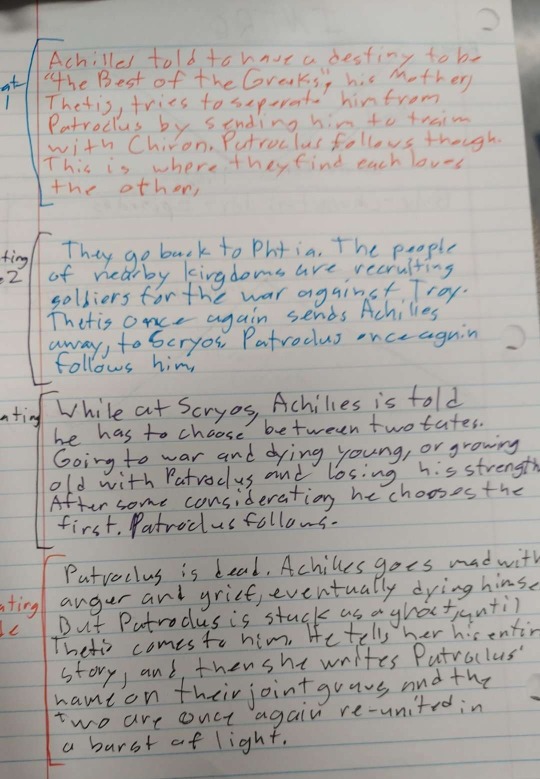 Achilles told to have a destiny to be
at "the Best of the Greeks", his Mother,
1 Thetis, tries to seperate him from
Patroclus by sending him to train
with Chiron. Patroclus follows though.
This is where they find each loves
the other,
They go back to Phtia. The people
ting of nearby kingdoms are recruiting
2 soldiers for the war against Troy.
Thetis once again sends Achilles
away, to Scryos. Patroclus once again
follows him,
While at Scryos, Achilies is told
ating he has to choose between two fates.
Going to war and dying young, or growing
old with Patroclus and losing his strength
After some consideration, he chooses the
first. Patroclus follows.
Patroclus is dead. Achilles goes mad with
ating anger and grief, eventually dying himse
But Patroclus is stuck as a ghost, until
Thetis comes to him. He tells her his entir
story, and then she writes Patroclus'
name on their joint grave and the
two are once again re-united in
a burst of light.